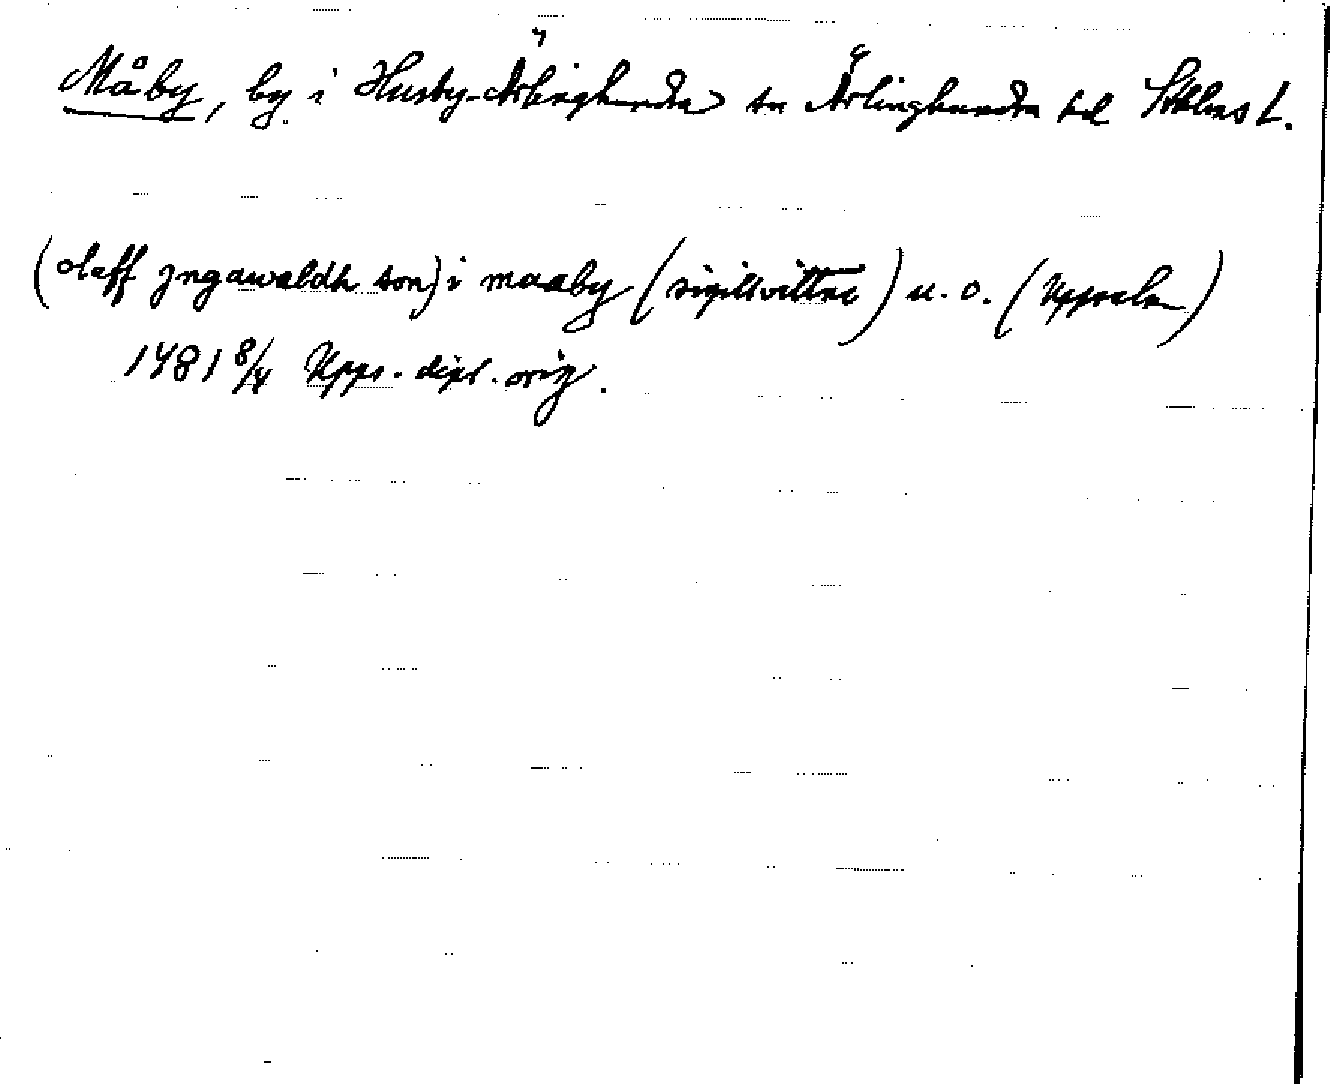 Måby, by i Husby-Ärlinghundra sn Ärlinghundra hd Sthlms l.
(olaff jngawaldh son) i maaby (sigillvittne) u. o. (Uppsala)
1481 8/4 Upps. dipl. orig.